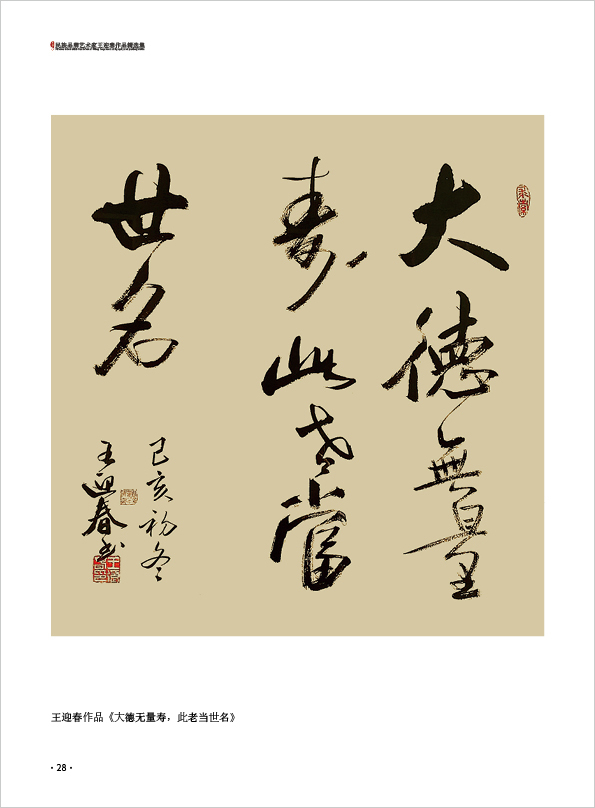 民族品牌艺术家王迎春作品精选集
大德無量
壽此老當
世名
己亥初冬
王迎春书
王迎春作品《大德无量寿，此老当世名》
· 28 ·